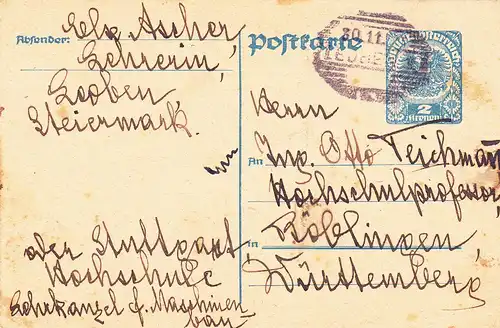 Absender: Elz Ascher
Lehrerin,
Leoben
Steiermark.
oder Stuttgart,
Hochschule
Lehrkanzel f. Maschinen
bau
Postkarte
30.11
Deutschösterreich
2
Kronen
Herrn
An Ing. Otto Teichmann
Hochschulprofessor,
in Böblingen,
Württemberg